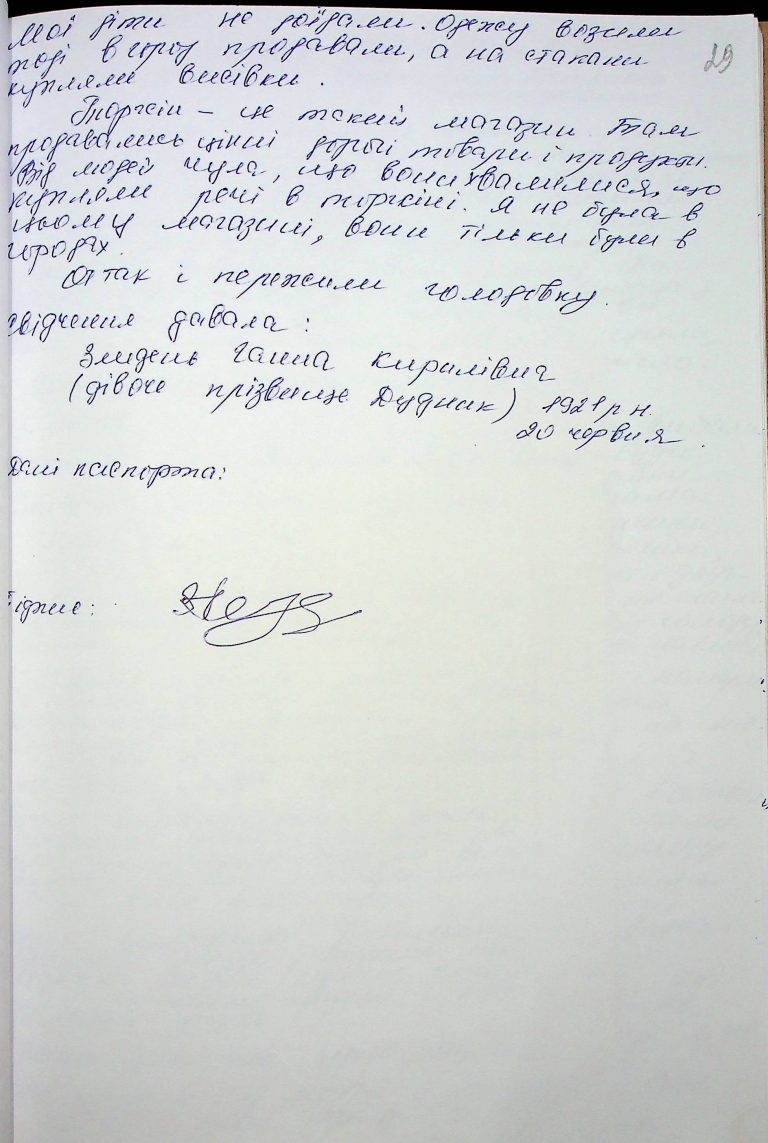 мої діти не доїдали. Одежу возили
тоді в город продавали, а на стакани
купляли висівки.
29
Торгсін – це такий магазин. Там
продавались цінні дорогі товари і продукти.
Від людей чула, що вони хвалилися, що
купляли речі в торгсіні. Я не була в
цьому магазині, вони тільки були в
городах.
Отак і пережили голодовку.
Свідчення давала:
Злидень Ганна Кирилівич
(дівоче прізвище Дудник) 1921 р.н.
20 червня.
Дані паспорта:
Підпис: